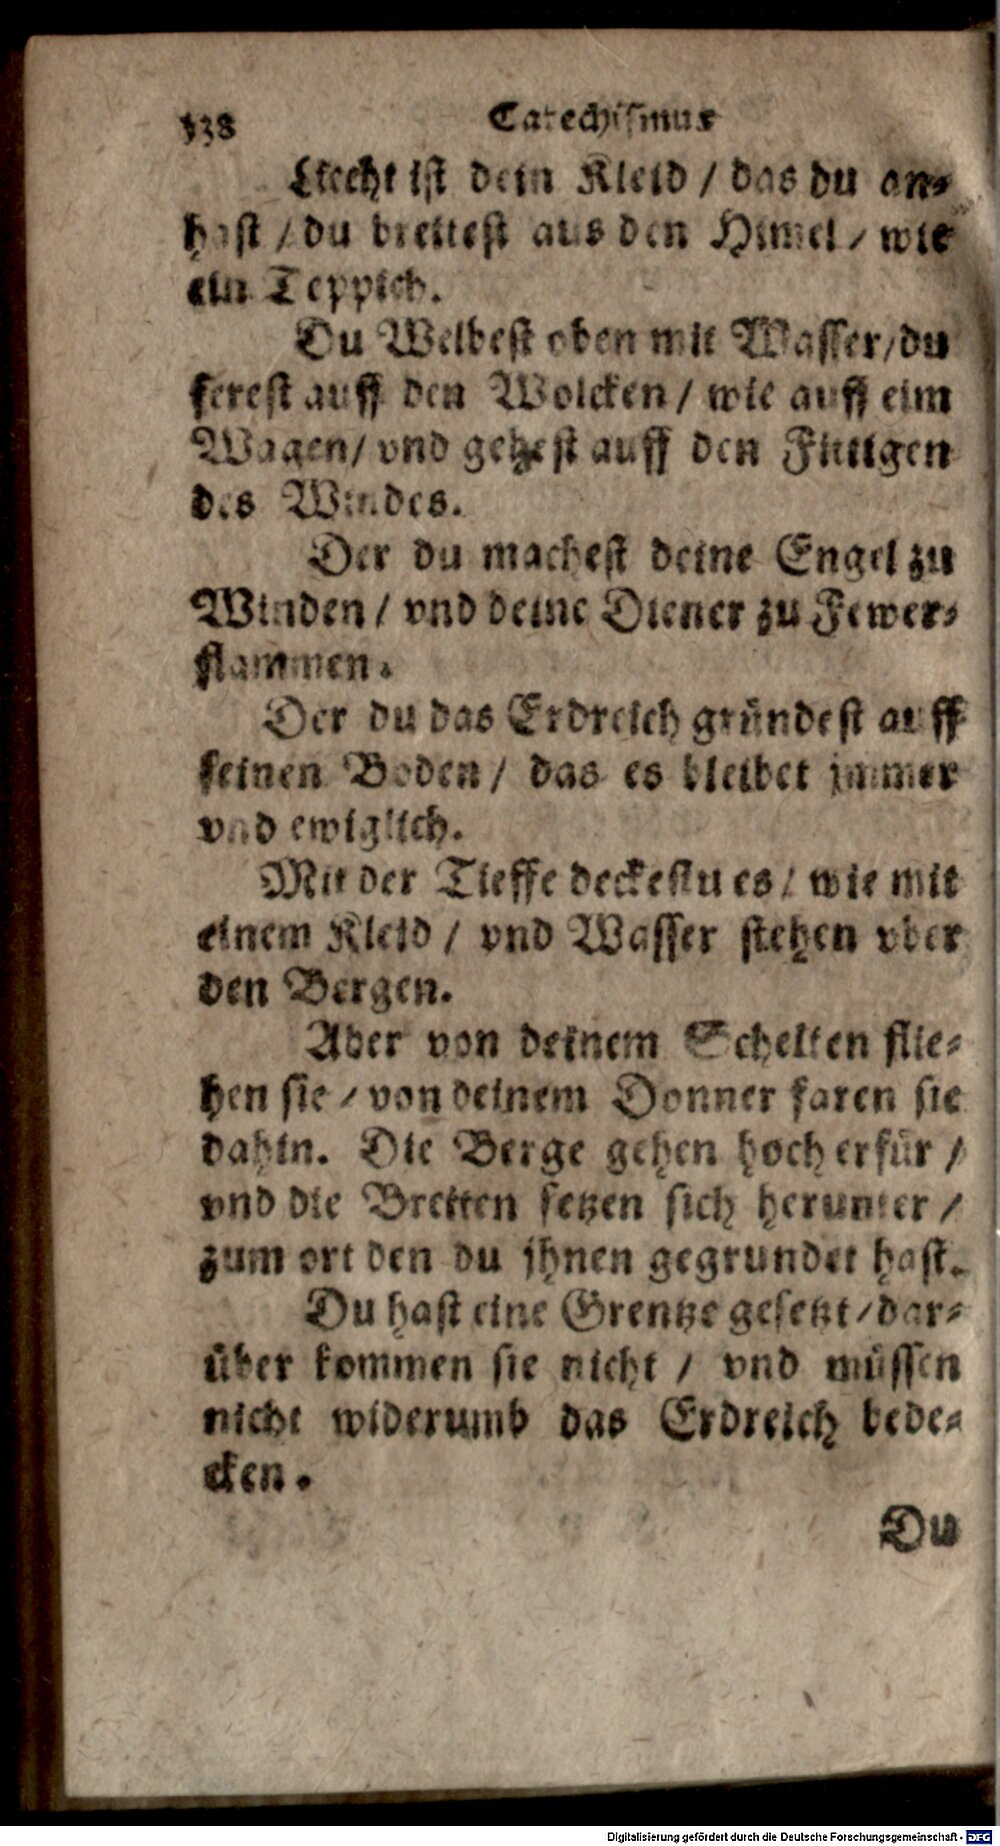 138 Catechismus
Liecht ist dein Kleid / das du an-
hast / du breitest aus den Himel / wie
ein Teppich.
Du Welbest oben mit Wasser / du
ferest auff den Wolcken / wie auff eim
Wagen / vnd gehest auff den Fittigen
des Windes.
Der du machest deine Engel zu
Winden / vnd deine Diener zu Fewer-
flammen.
Der du das Erdreich gründest auff
seinen Boden / das es bleibet jmmer
vnd ewiglich.
Mit der Tieffe deckestu es / wie mit
einem Kleid / vnd Wasser stehen vber
den Bergen.
Aber von deinem Schelten flie-
hen sie / von deinem Donner faren sie
dahin. Die Berge gehen hoch erfür /
vnd die Breiten setzen sich herunter /
zum ort den du jhnen gegrundet hast.
Du hast eine Grentze gesetzt / dar-
über kommen sie nicht / vnd müssen
nicht widerumb das Erdreich bede-
cken.
Du
Digitalisierung gefördert durch die Deutsche Forschungsgemeinschaft - DFG